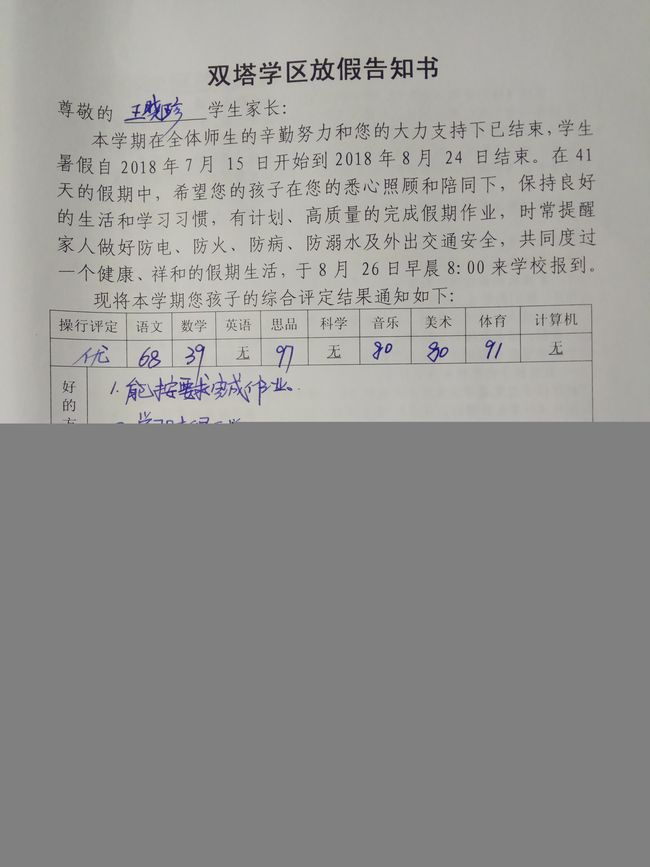 双塔学区放假告知书
尊敬的 王晓珍 学生家长：
本学期在全体师生的辛勤努力和您的大力支持下已结束，学生
暑假自2018年7月 15 日开始到2018年8月 24 日结束。在41
天的假期中，希望您的孩子在您的悉心照顾和陪同下，保持良好
的生活和学习习惯，有计划、高质量的完成假期作业，时常提醒
家人做好防电、防火、防病、防溺水及外出交通安全，共同度过
一个健康、祥和的假期生活，于8月 26日早晨8:00来学校报到。
现将本学期您孩子的综合评定结果通知如下：
操行评定 语文 数学 英语 思品 科学 音乐 美术 体育 计算机
优 68 39 无 97 无 80 80 91 无
好的方
1.能按要求完成作业。